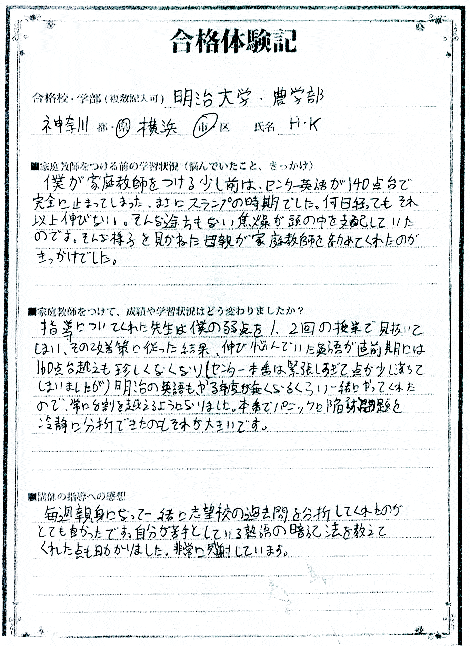 合格体験記
合格校・学部(複数記入可) 明治大学・農学部
神奈川 都・県 横浜 市・区 氏名 H・K
■家庭教師をつける前の学習状況（悩んでいたこと、きっかけ）
僕が家庭教師をつける少し前は、センター英語が140点台で
完全に止まってしまった、まさにスランプの時期でした。何日経ってもそれ
以上伸びない。そんな焦燥が頭の中を支配していた
のです。そんな様子を見かねた母親が家庭教師を勧めてくれたのが
きっかけでした。
■家庭教師をつけて、成績や学習状況はどう変わりましたか？
指導についてくれた先生は僕の弱点を1、2回の授業で見抜いて
しまい、その改善策に従った結果、伸び悩んでいた英語が直前期には
160点を越えも珍しくなくなり(センター本番は緊張しすぎて点が少し減って
しまいましたが)明治の英語もやる年度が無くなるくらい一緒にやってくれた
ので、常に8割を越えるようになりました。本番でパニックに陥らず問題を
冷静に分析できたのもそれが大きいです。
■講師の指導への感想
毎週親身になって一緒に志望校の過去問を分析してくれたのが
とても良かったです。自分が苦手としている熟語の暗記法を教えて
くれた点も助かりました。非常に感謝しています。